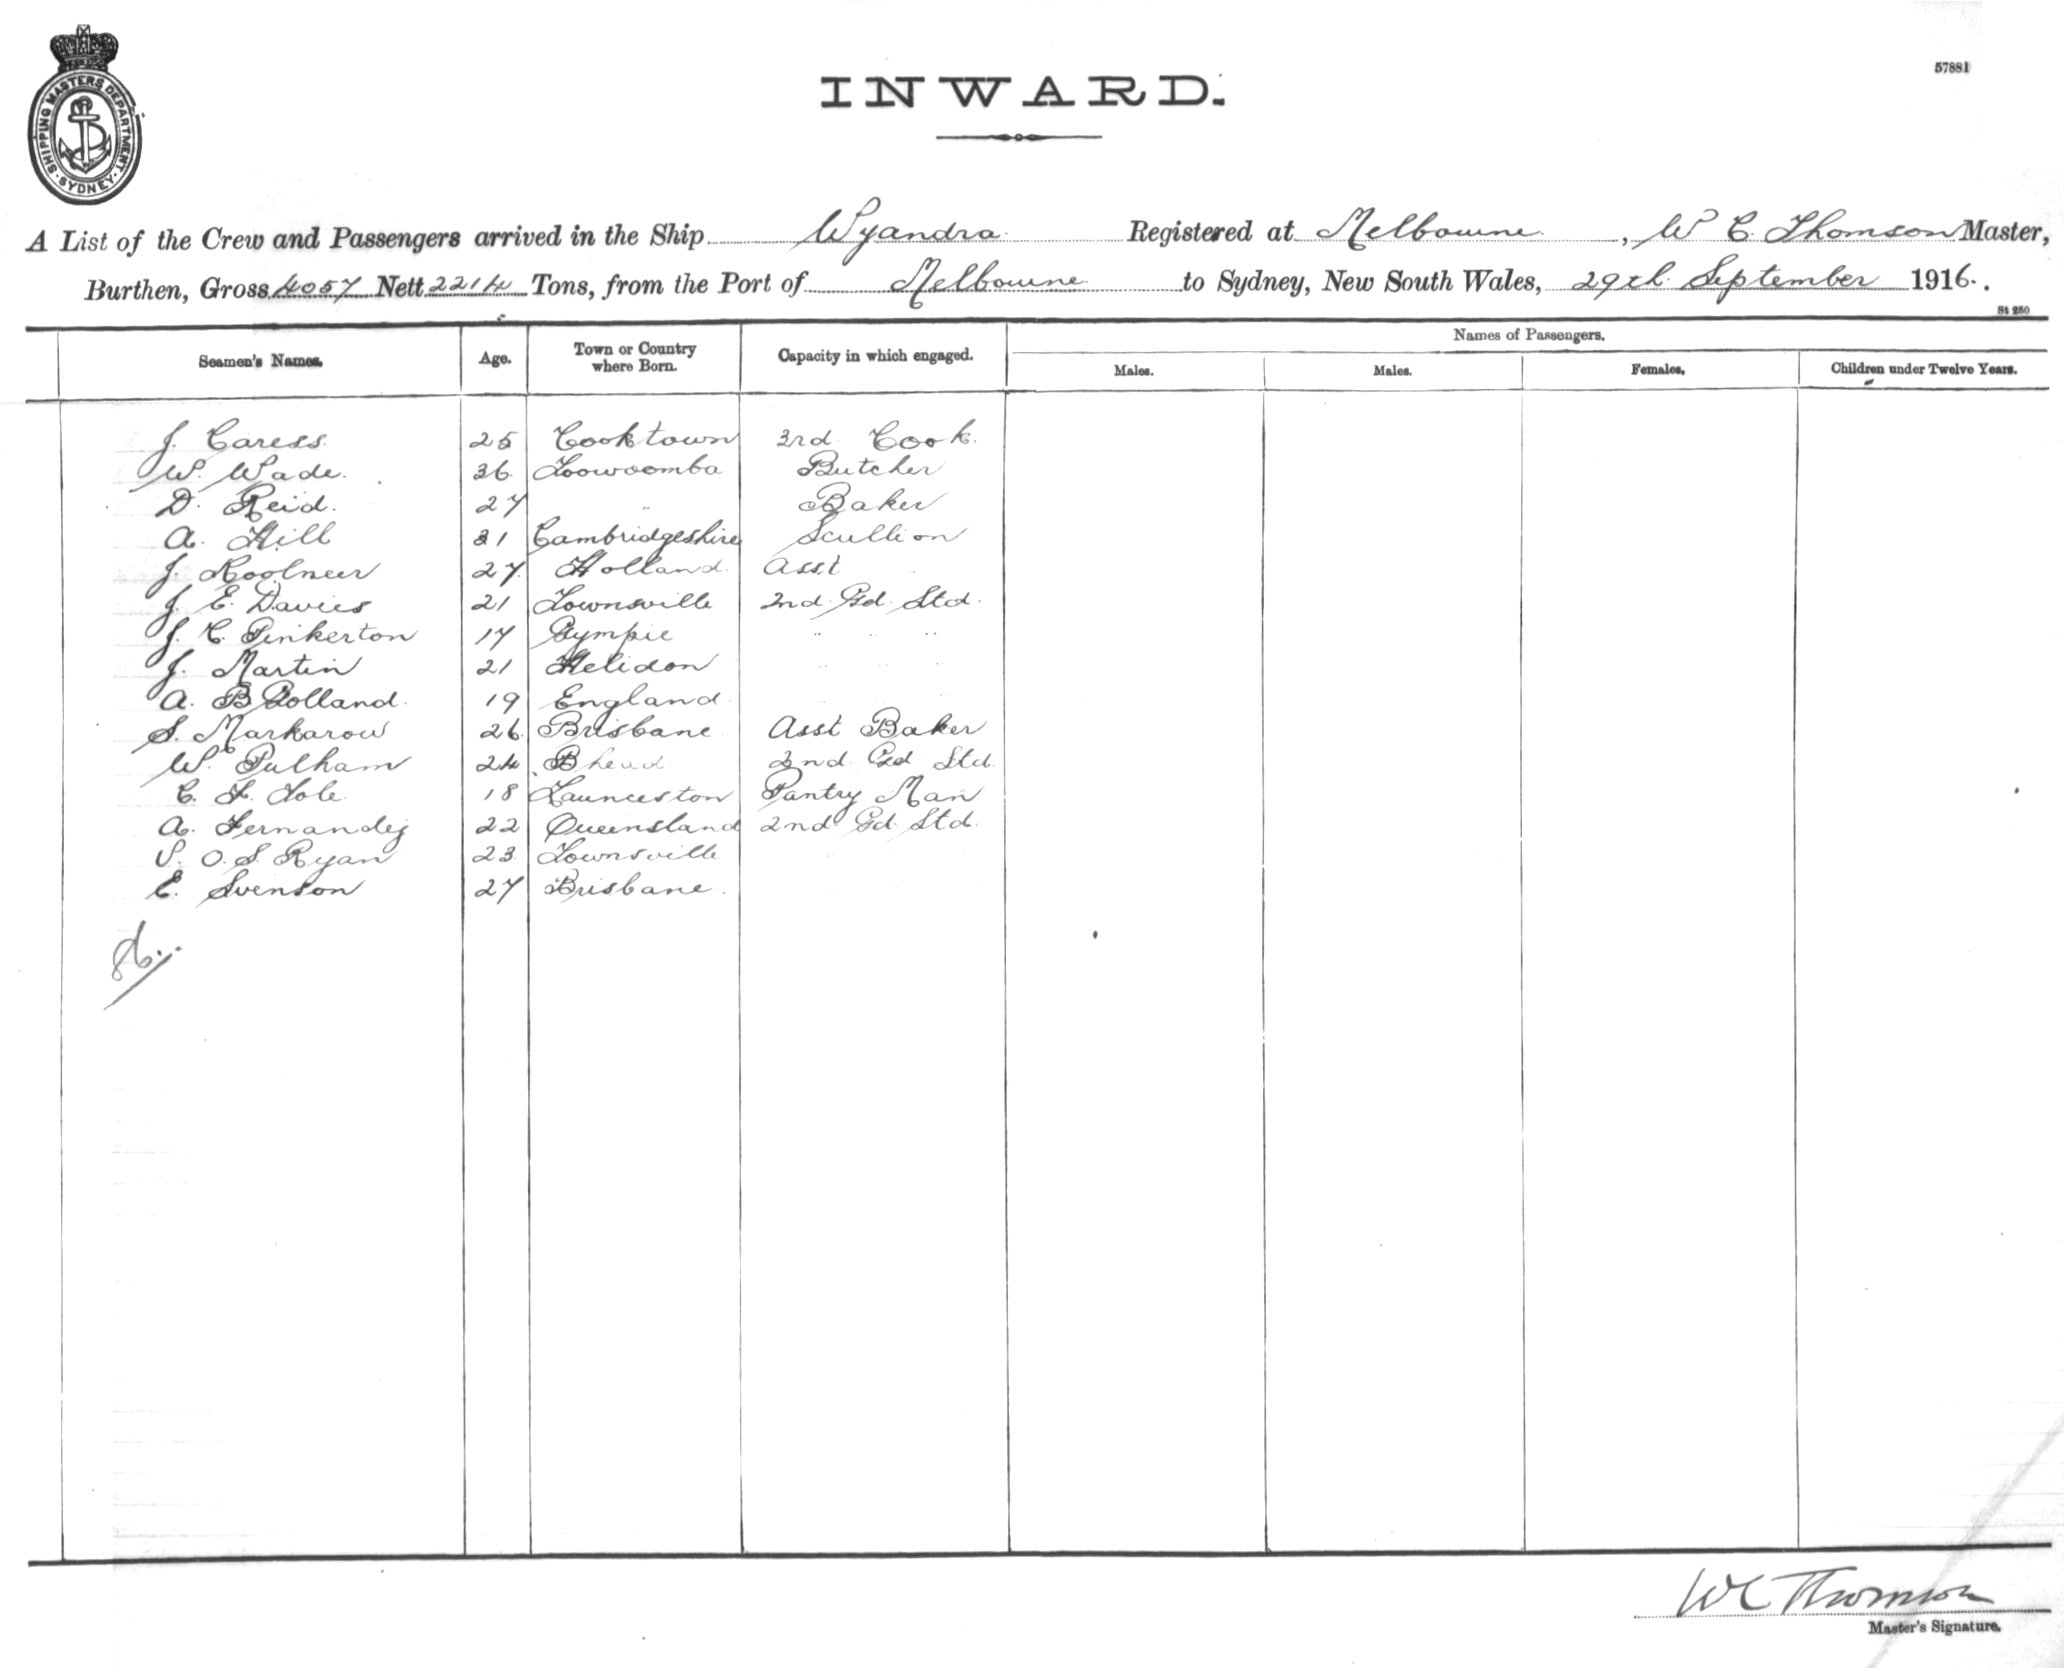 SHIPPING MASTERS DEPARTMENT
SYDNEY
57881
INWARD.
A List of the Crew and Passengers arrived in the Ship Wyandra Registered at Melbourne, W C Thomson Master,
Burthen, Gross 4057 Nett 2214 Tons, from the Port of Melbourne to Sydney, New South Wales, 29th September 1916.
St 250
Seamen's Names. Age. Town or Country where Born. Capacity in which engaged. Names of Passengers.
Males. Males. Females. Children under Twelve Years.
J. Caress 25 Cooktown 3rd Cook.
W. Wade. 36 Toowoomba Butcher
D. Reid. 27 " Baker
A. Hill 31 Cambridgeshire Scullion
J. 27 Holland Asst "
J. E. Davies 21 Townsville 2nd Gd. Std.
J. C. Pinkerton 17 Gympie " " "
J. Martin 21 Helidon " "
A. B Bolland. 19 England
S. Markarow 26 Brisbane Asst Baker
W. Pulham 24 B head 2nd Gd Std
C. F. Tole 18 Launceston Pantry Man
A. Fernandez 22 Queensland 2nd Gd. Std.
S. O. S. Ryan 23 Townsville
E. Svenson 27 Brisbane.
W C Thomson
Master's Signature.